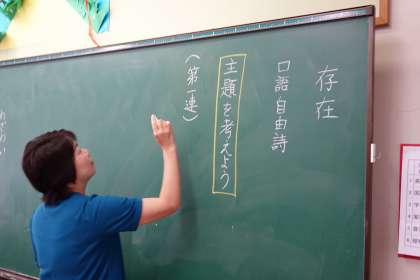 存在
口語自由詩
主題を考えよう
(第一連)